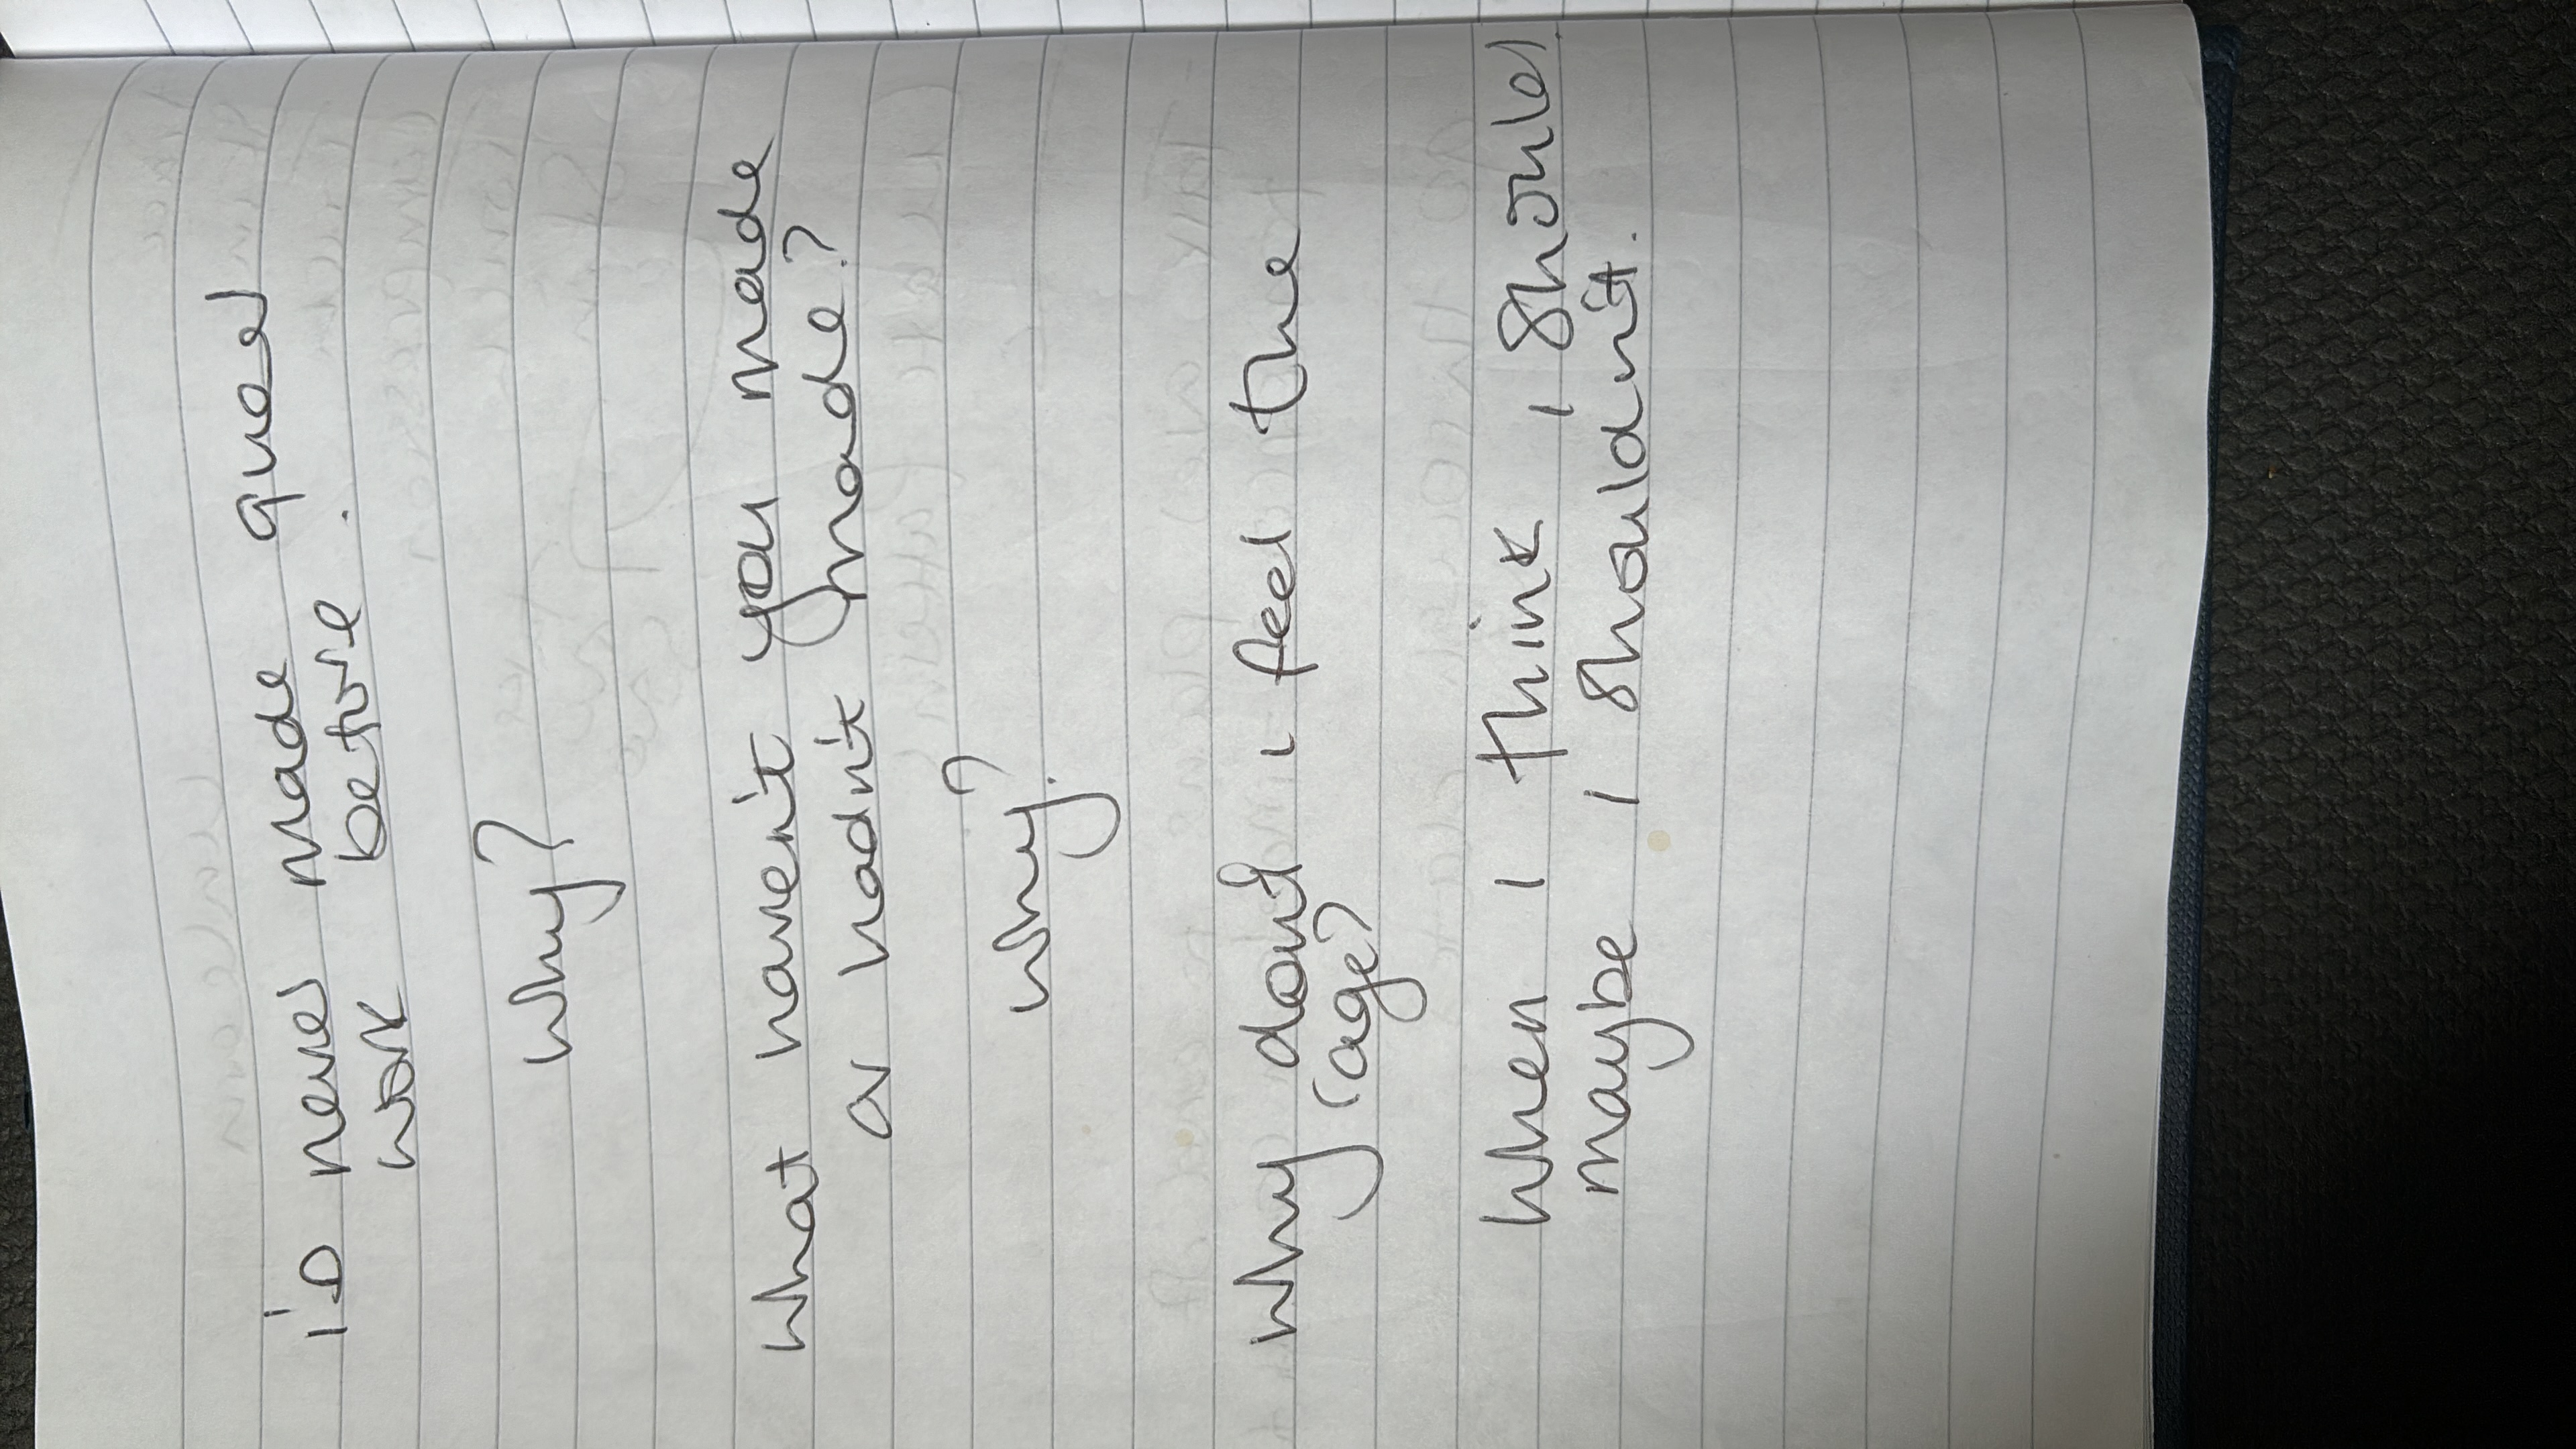 i'D never made queer
work before.
Why?
What haven't you made
or hadn't made?
Why?
Why don't i feel the
(age?
When I think I should
maybe I shouldn't.